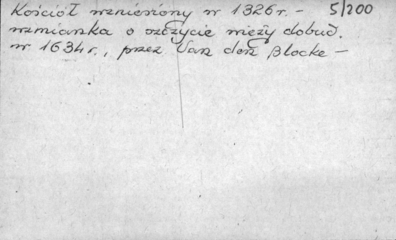 Kościół wzniesiony w 1326r. – 5/200
wzmianka o szczycie wieży dobud.
w 1634r., przez Van den Blocke –